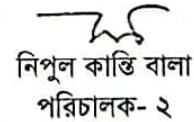 নিপুল কান্তি বালা
পরিচালক- ২